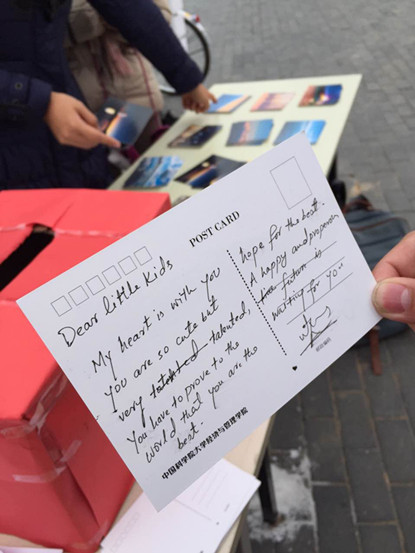 POST CARD
Dear little Kids
My heart is with you
you are so cute but
very talented,
You have to prove to the
world that you are the
best.
hope for the best.
A happy and prosperous
future is
waiting for you
中国科学院大学经济与管理学院